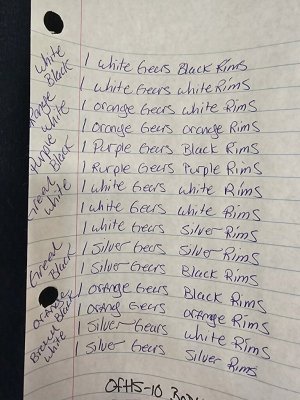 White
Black
1 White Gears Black Rims
1 White Gears White Rims
Orange
White
1 Orange Gears White Rims
1 Orange Gears Orange Rims
Purple
Black
1 Purple Gears Black Rims
1 Purple Gears Purple Rims
White
1 White Gears White Rims
1 White Gears White Rims
1 White Gears Silver Rims
Black
1 Silver Gears Silver Rims
1 Silver Gears Black Rims
Orange
Black
1 Orange Gears Black Rims
1 Orang Gears Orange Rims
White
1 Silver Gears White Rims
1 Silver Gears Silver Rims